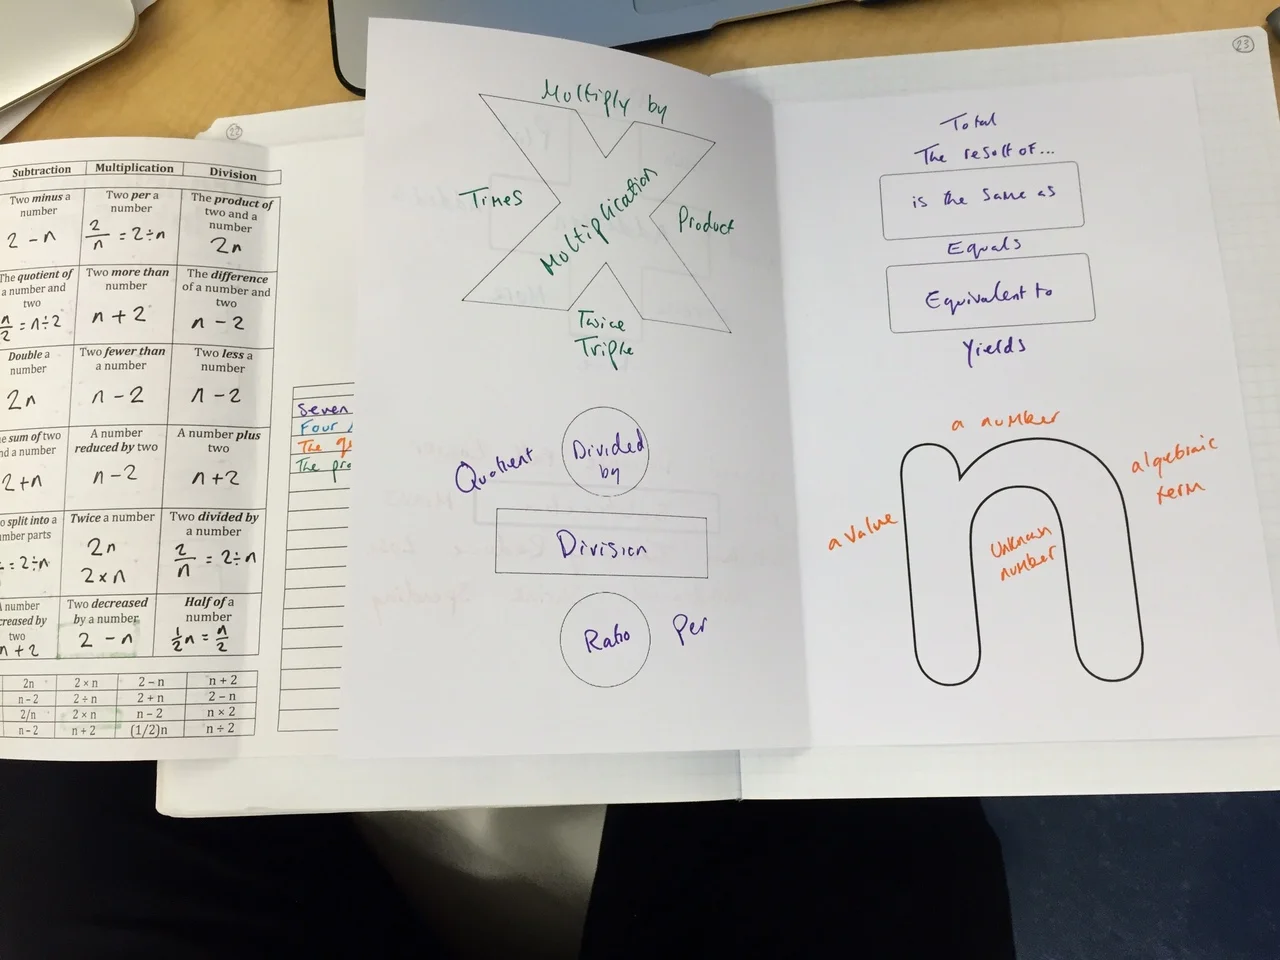 22
Subtraction Multiplication Division
Two minus a number
2 - n
Two per a number
2/n = 2÷n
The product of two and a number
2n
The quotient of a number and two
n/2 = n÷2
Two more than number
n + 2
The difference of a number and two
n - 2
Double a number
2n
Two fewer than a number
n - 2
Two less a number
n - 2
sum of two
and a number
2+n
A number reduced by two
n - 2
A number plus two
n+2
split into a
number parts
= 2÷n
Twice a number
2n
2×n
Two divided by a number
2/n = 2÷n
number
two
n + 2
Two decreased by a number
2 - n
Half of a number
1/2 n = n/2
2n 2 × n 2 – n n + 2
n – 2 2 ÷ n 2 + n 2 – n
2/n 2 × n n – 2 n × 2
n – 2 n + 2 (1/2)n n ÷ 2
Seven
Four
The
The
Multiply by
Times
Multiplication
Product
Twice
Triple
Quotient
Divided
by
Division
Ratio
Per
23
Total
The result of...
is the same as
Equals
Equivalent to
Yields
a number
algebraic
term
a value
Unknown
number